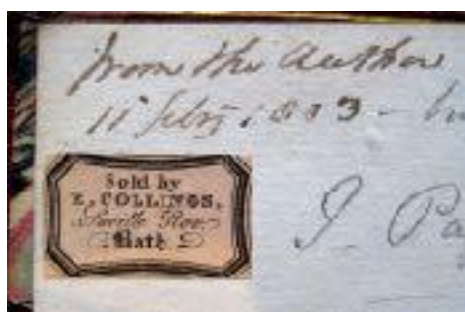 From the Author
11 feby 1803 -
Sold by
E. COLLINGS,
Saville Row
Bath
J. Pa